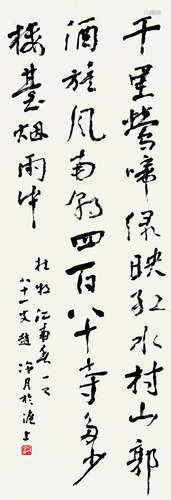 千里莺啼绿映红水村山郭
酒旗风南朝四百八十寺多少
楼台烟雨中
杜牧江南春一首
八十一叟赵冷月於沪上